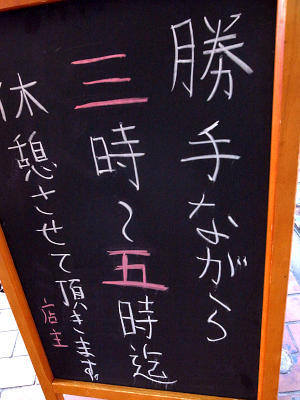 勝手ながら
三時〜五時迄
休憩させて頂きます。
店主